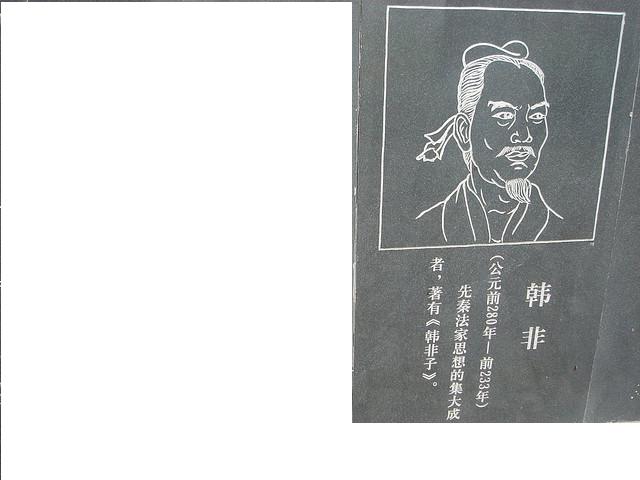 韩非
（公元前280年—前233年）
先秦法家思想的集大成
者，著有《韩非子》。